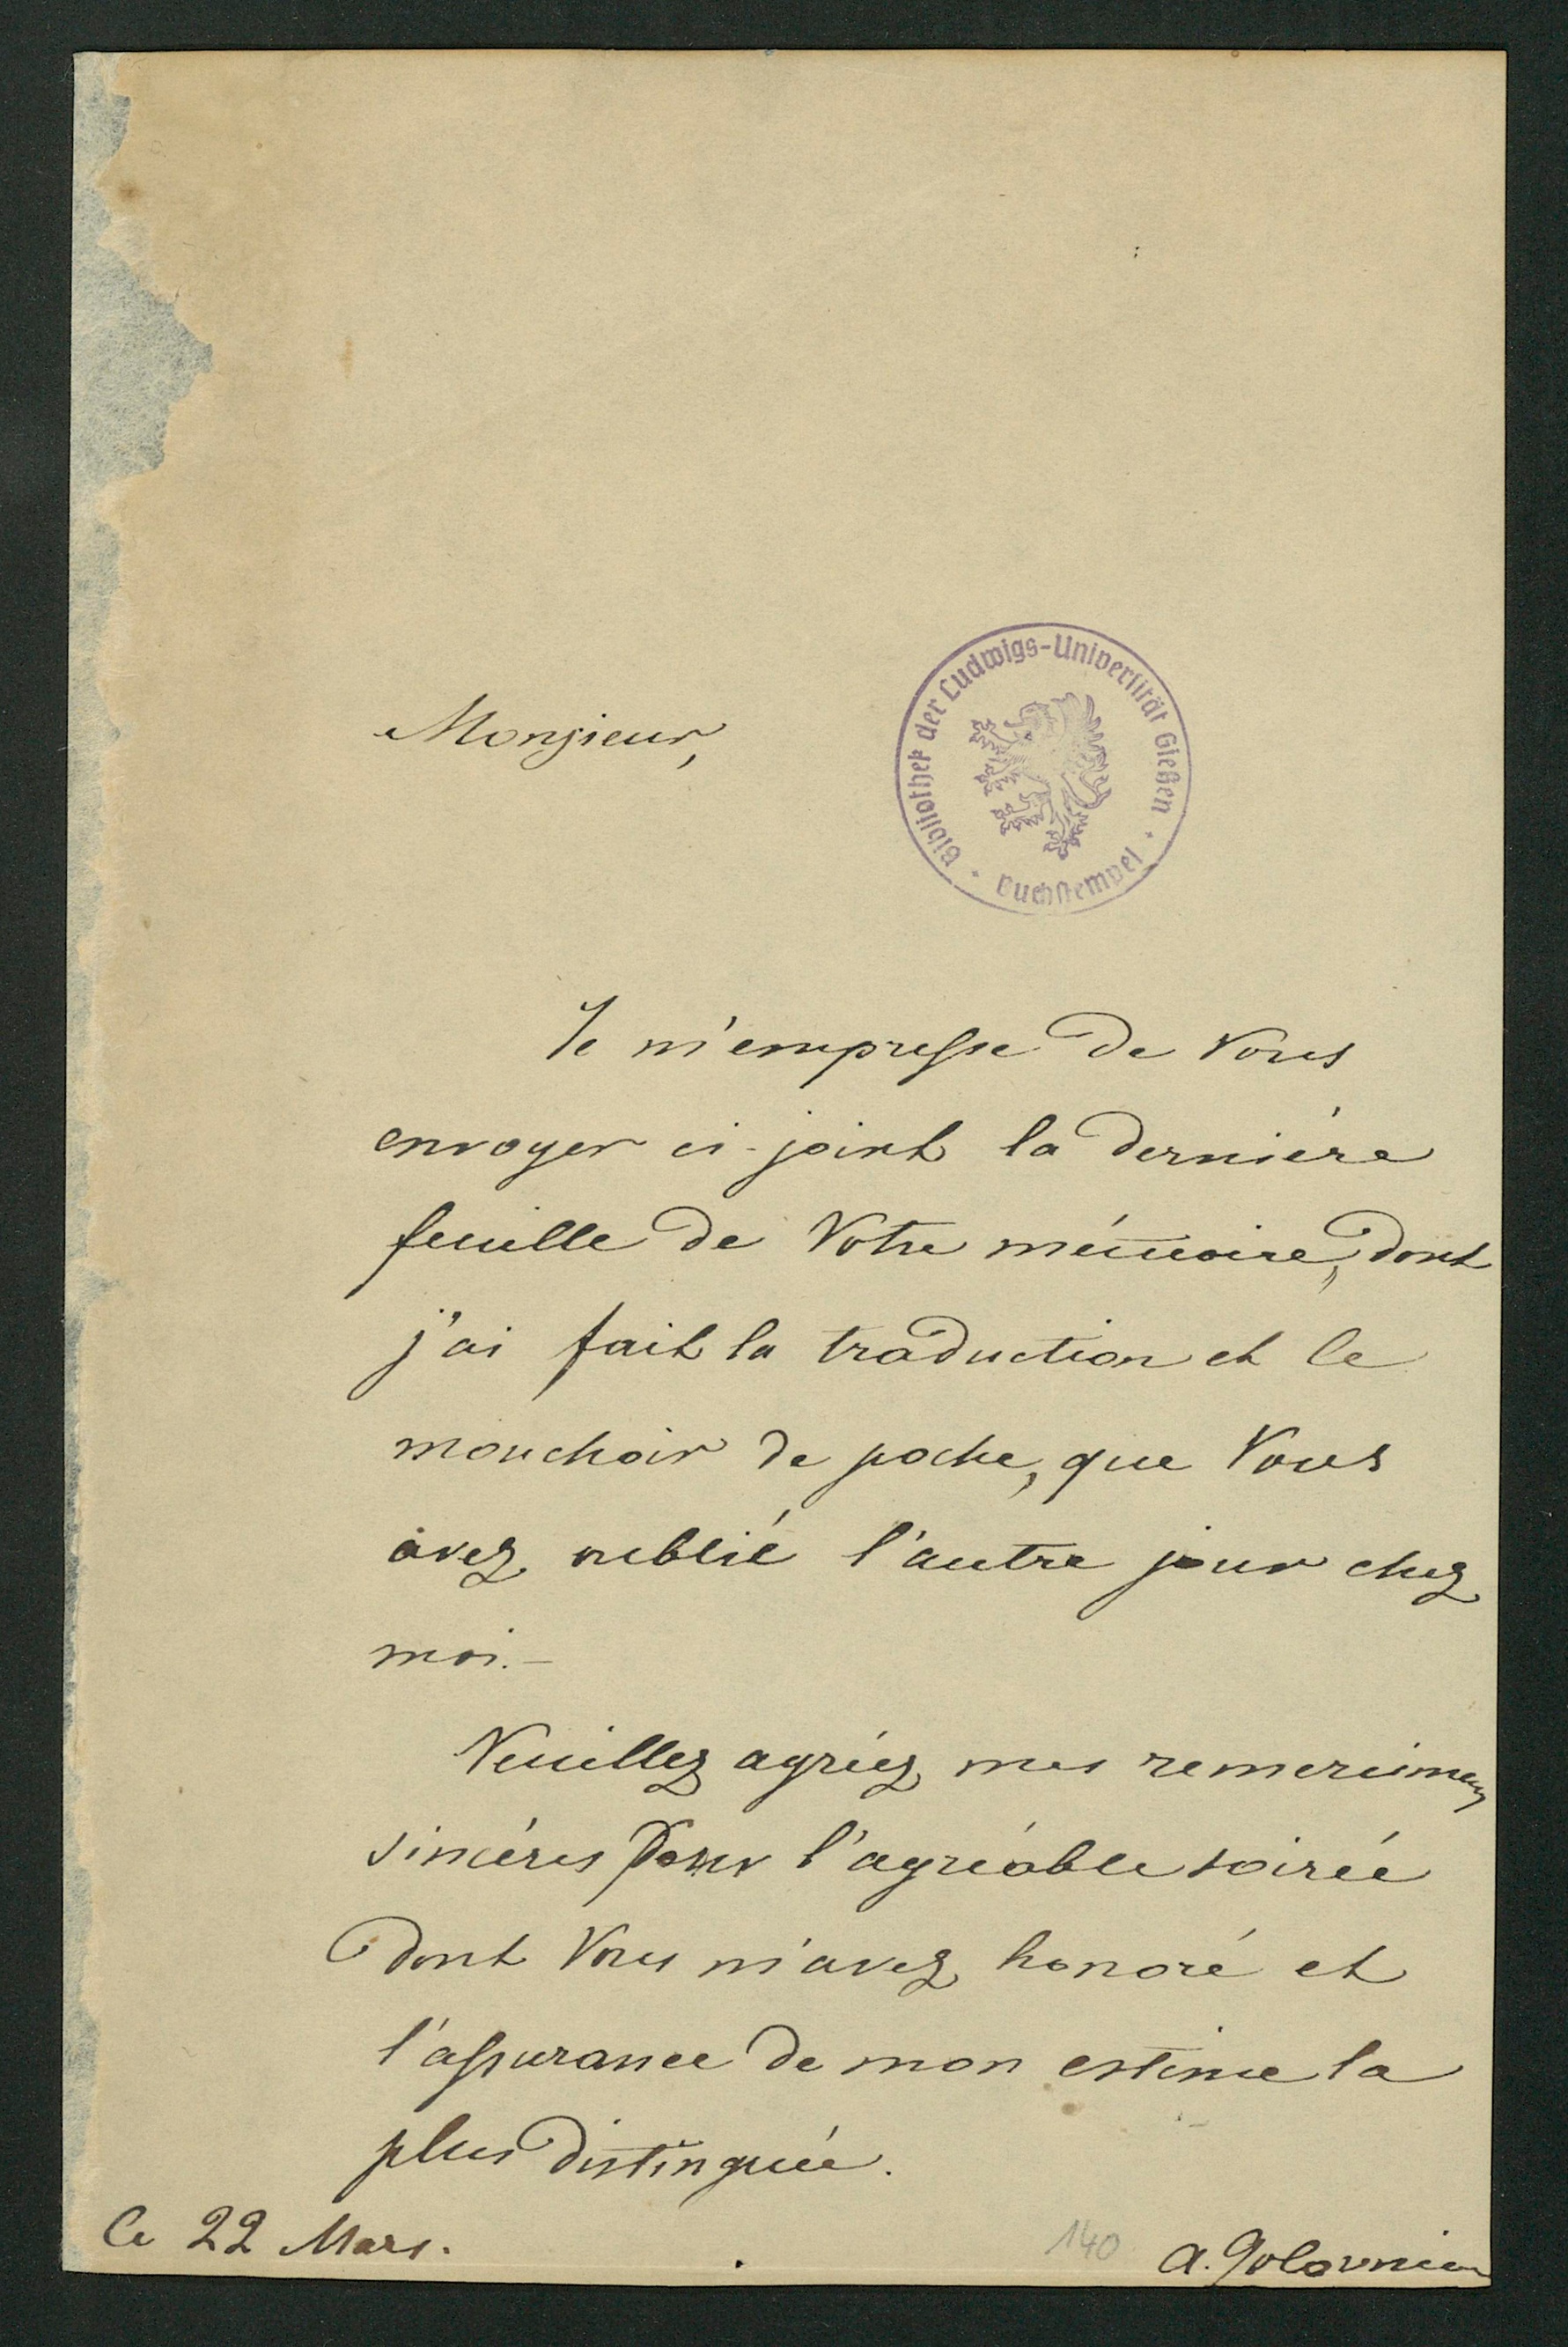 Monsieur,
Bibliothek der Ludwigs-Universität Gießen
· Buchstempel ·
Je m'empresse de Vous
envoyer ci-joint la dernière
feuille de Votre mémoire, dont
j'ai fait la traduction et le
mouchoir de poche, que Vous
avez oublié l'autre jour chez
moi.—
Veuillez agréez mes remercimens
sincères pour l'agréable soirée
dont Vous m'avez honoré et
l'assurance de mon estime la
plus distinguée.
Ce 22 Mars.
140
A. Golovnin